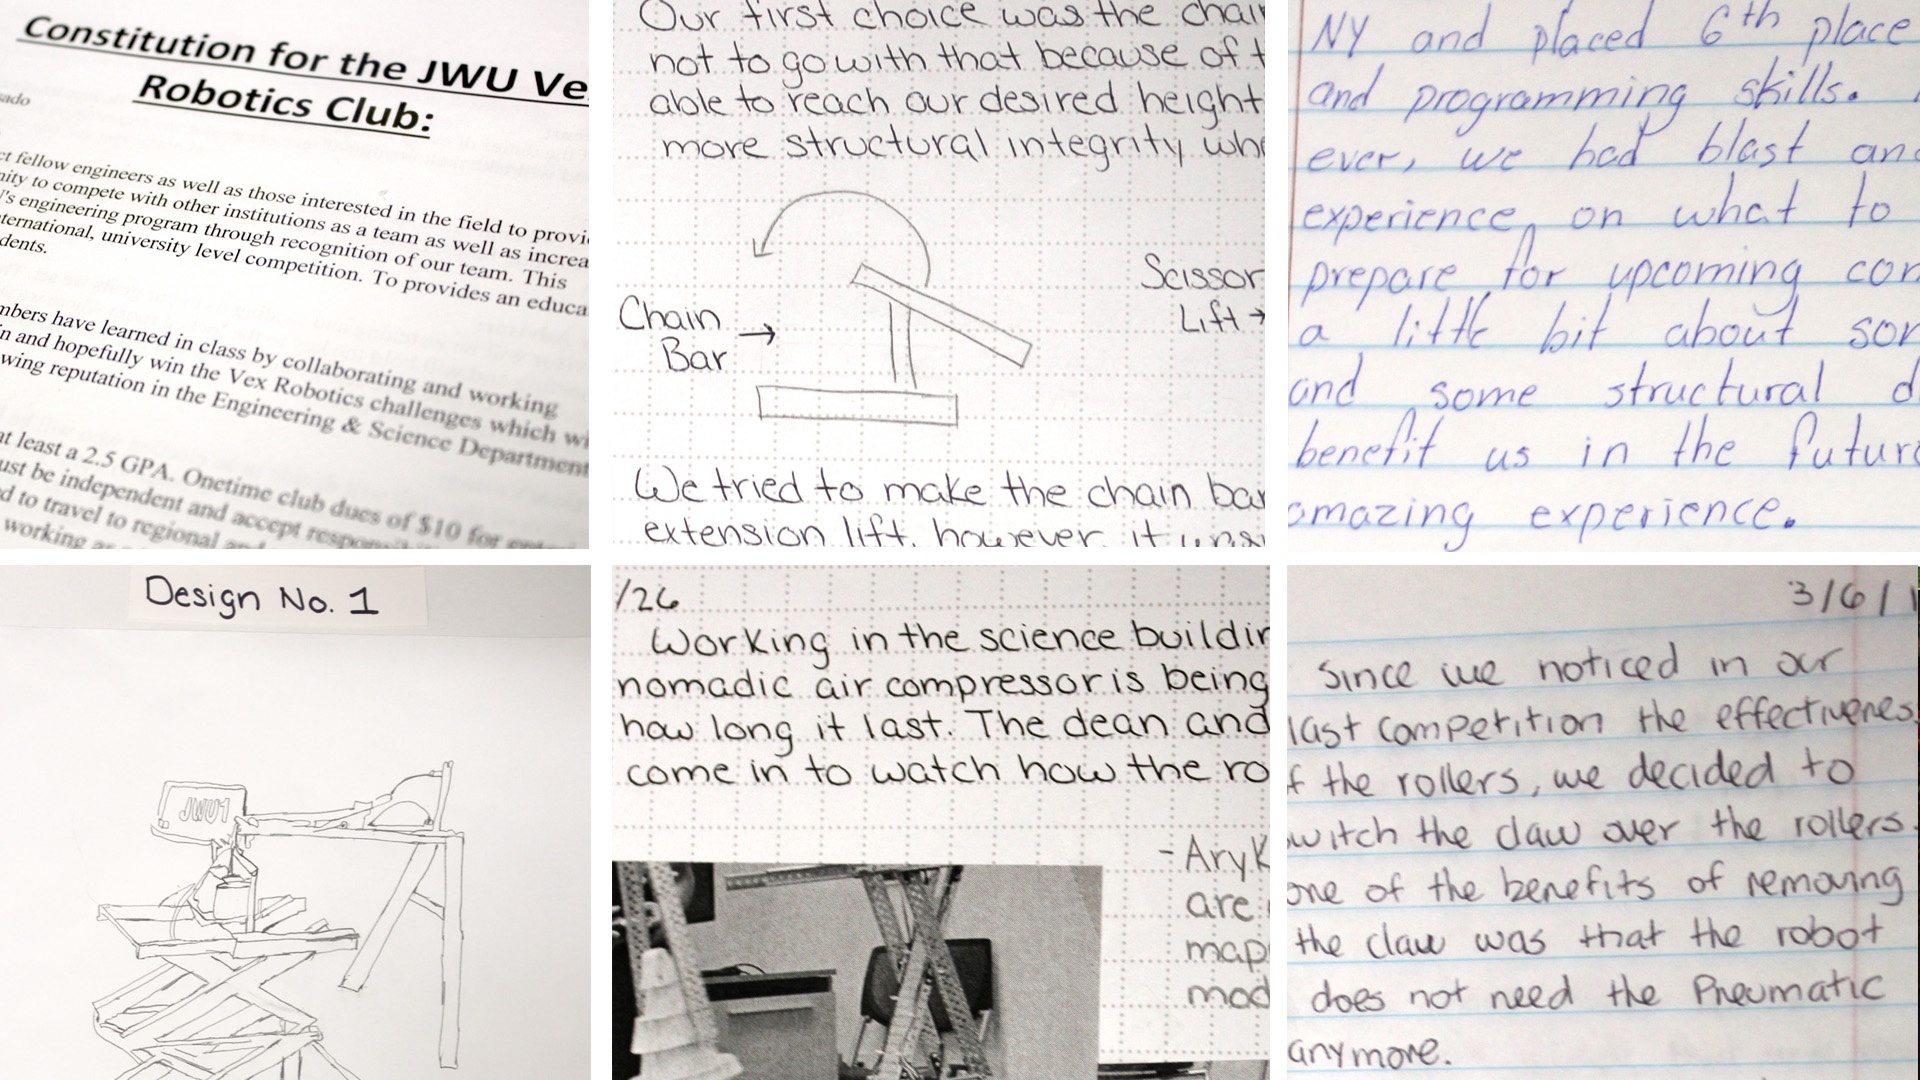 Constitution for the JWU Ve
Robotics Club:
ado
ct fellow engineers as well as those interested in the field to provi
nity to compete with other institutions as a team as well as increa
's engineering program through recognition of our team. This
ternational, university level competition. To provides an educa
dents.
mbers have learned in class by collaborating and working
n and hopefully win the Vex Robotics challenges which wi
wing reputation in the Engineering & Science Department
at least a 2.5 GPA. Onetime club dues of $10 for
ust be independent and accept
d to travel to regional and
working as
Our first choice was the chai
not to go with that because of t
able to reach our desired height
more structural integrity whe
Chain
Bar
Scissor
Lift
We tried to make the chain bar
extension lift, however, it
NY and placed 6th place
and programming skills.
ever, we had blast an
experience, on what to
prepare for upcoming com
a little bit about som
and some structural d
benefit us in the future
amazing experience.
Design No. 1
JWU1
/26
Working in the science buildin
nomadic air compressor is being
how long it last. The dean and
come in to watch how the ro
- AryK
are
map
mod
3/6/1
Since we noticed in our
last competition the effectivenes
f the rollers, we decided to
witch the claw over the rollers.
one of the benefits of removing
the claw was that the robot
does not need the Pneumatic
anymore.